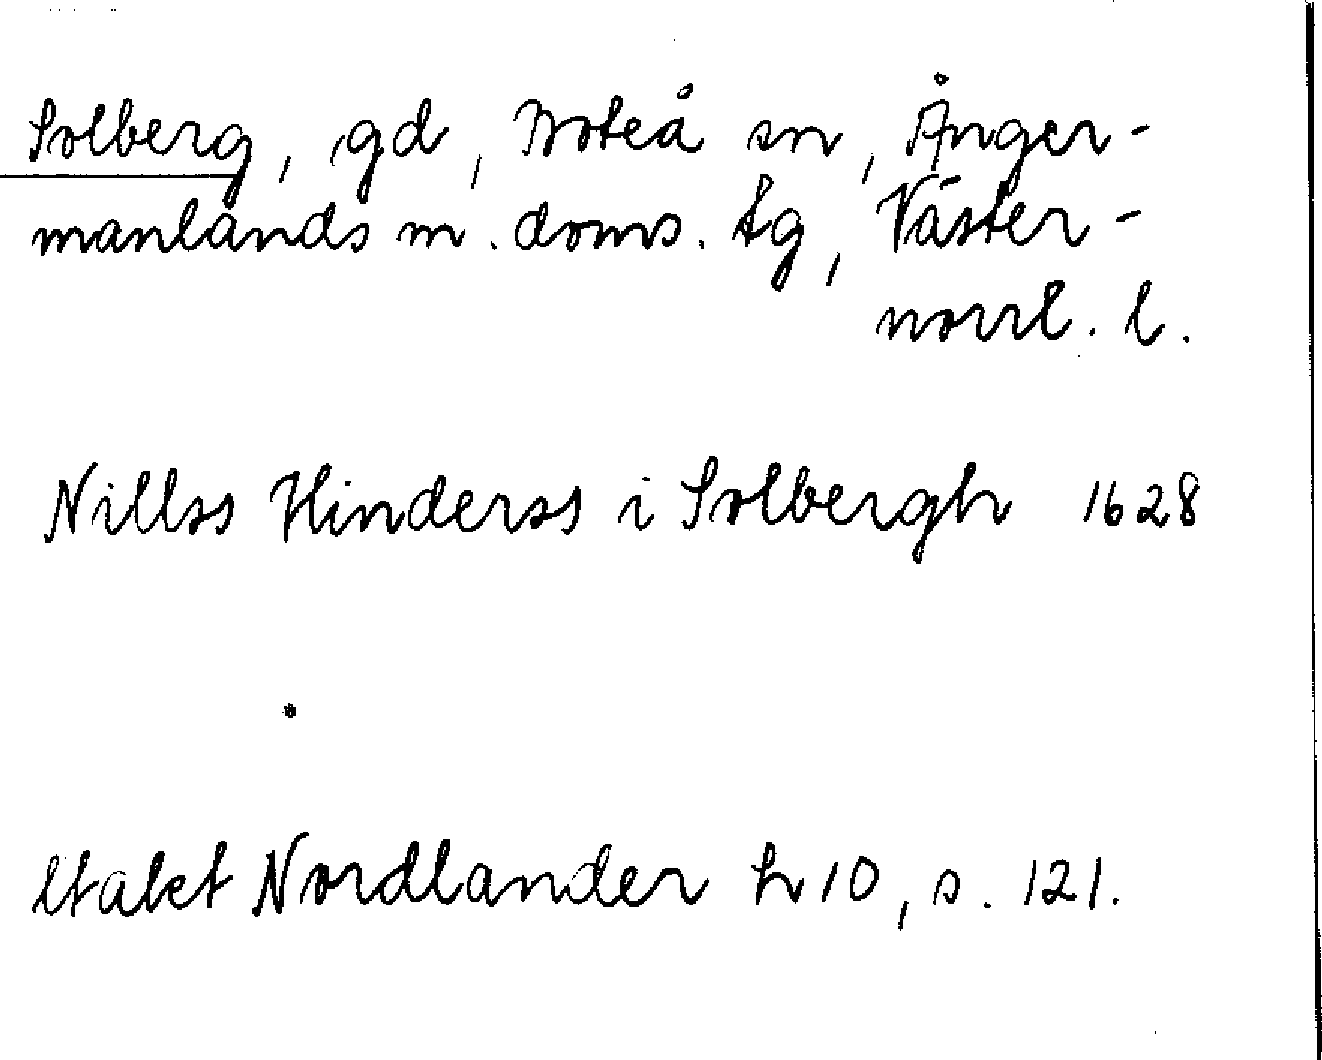 Solberg, gd, Boteå sn, Ånger-
manlands m. doms. tg, Väster-
norrl. l.
Nillss Hinderss i Solbergh 1628
Nordlander h 10, s. 121.